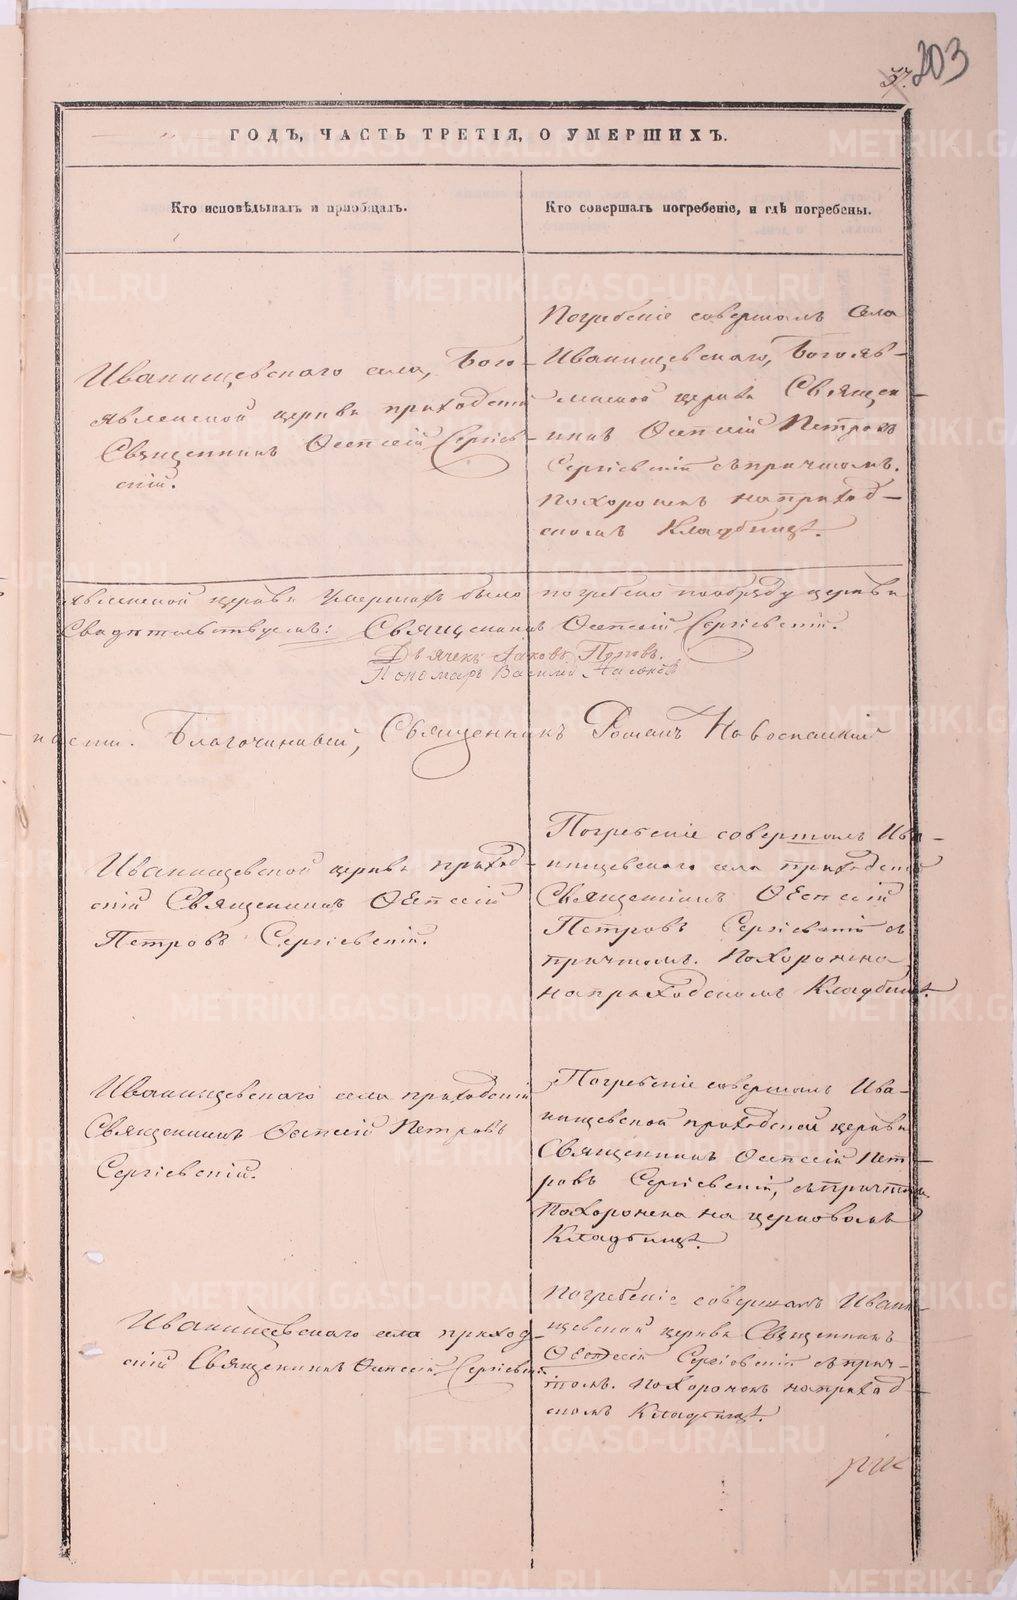 203
ГОДЪ, ЧАСТЬ ТРЕТІЯ, О УМЕРШИХЪ.
Кто исповѣдывалъ и пріобщалъ.
Кто совершалъ погребеніе, и гдѣ погребены.
Иванищевскаго села, Бого-
явленской церкви приходскій
Священникъ Сергіев-
скій.
Погребеніе совершалъ Села
Иванищевскаго, Богояв-
ленской церкви Священ-
никъ Петровъ
Сергіевскій съ причтомъ.
Похороненъ на приход-
скомъ Кладбищѣ.
явленской церкви Умершихъ было погребено по обряду церкви
Свидѣтельствуемъ: Священникъ Сергіевскій.
Дьячекъ Іаковъ Поповъ.
Пономарь Василій
части. Благочинный, Священникъ Романъ Новоспасскій
Иванищевской церкви приход-
скій Священникъ
Петровъ Сергіевскій.
Погребеніе совершалъ Ива-
нищевскаго села приходскій
Священникъ
Петровъ Сергіевскій съ
причтомъ. Похоронена
на приходскомъ Кладбищѣ.
Иванищевскаго села приходскій
Священникъ Петровъ
Сергіевскій.
Погребеніе совершалъ Ива-
нищевской приходской церкви
Священникъ Пет-
ровъ Сергіевскій, съ причтомъ
Похоронена на церковномъ
Кладбищѣ.
Иванищевскаго села приход-
скій Священникъ Сергіевскій
Погребеніе совершалъ Ивани-
щевской церкви Священникъ
Сергіевскій съ прич-
томъ. Похороненъ на приход-
скомъ Кладбищѣ.
METRIKI.GASO-URAL.RU